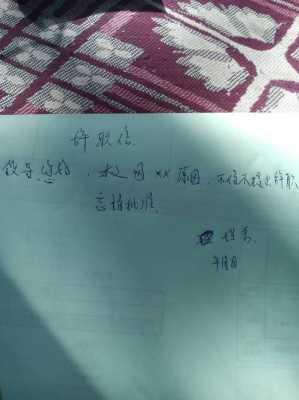 辞职信
领导您好，本人因xx原因，不得不提出辞职
望请批准
年月日